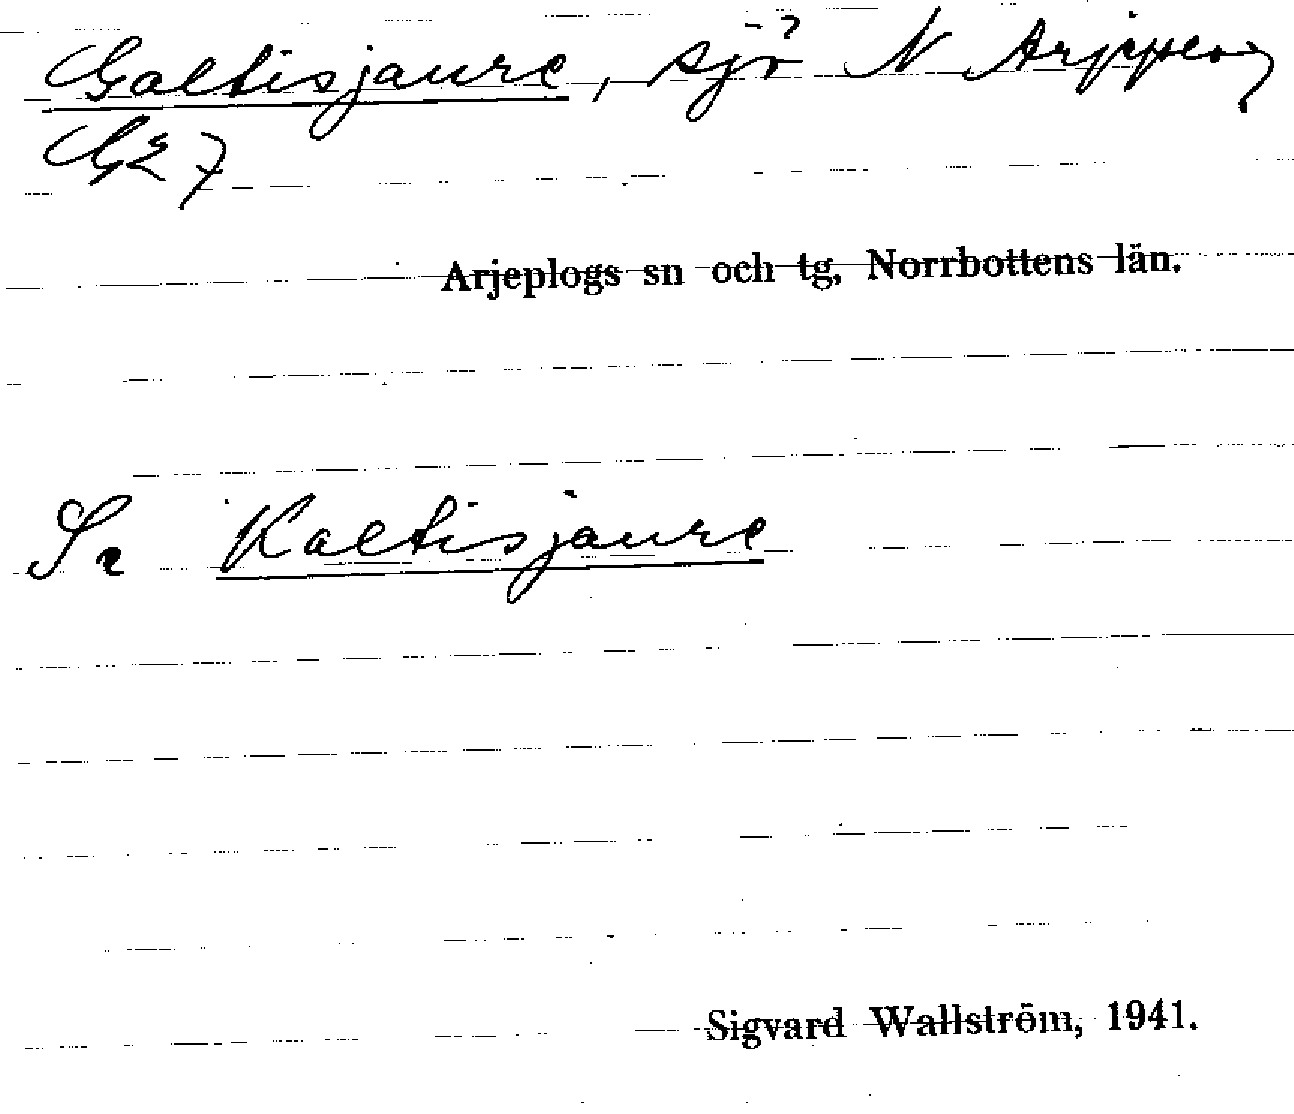 Galtisjaure, sjö N Arjeplog
GE 7
Arjeplogs sn och tg, Norrbottens län.
Se Kaltisjaure
Sigvard Wallström, 1941.